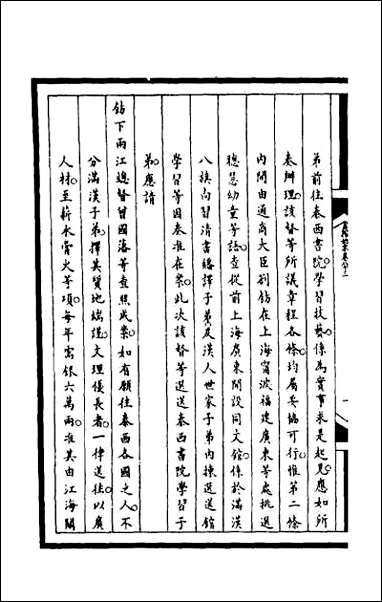 弟前往泰西書院學習技藝係為實事求是起見應如所
奏辦理該督等所議章程各條均屬妥協可行惟第二條
內開由通商大臣刻飭在上海寧波福建廣東等處挑選
聰慧幼童等語查從前上海廣東開設同文館係於滿漢
八旗向習清書繙譯子弟及漢人世家子弟內揀選送館
學習等因奏准在案此次該督等選送泰西書院學習子
弟應請
飭下兩江總督曾國藩等查照成案如有願往泰西各國之人不
分滿漢子弟擇其質地端謹文理優長者一律送往以廣
人材至薪水膏火等項每年需銀六萬兩准其由江海關